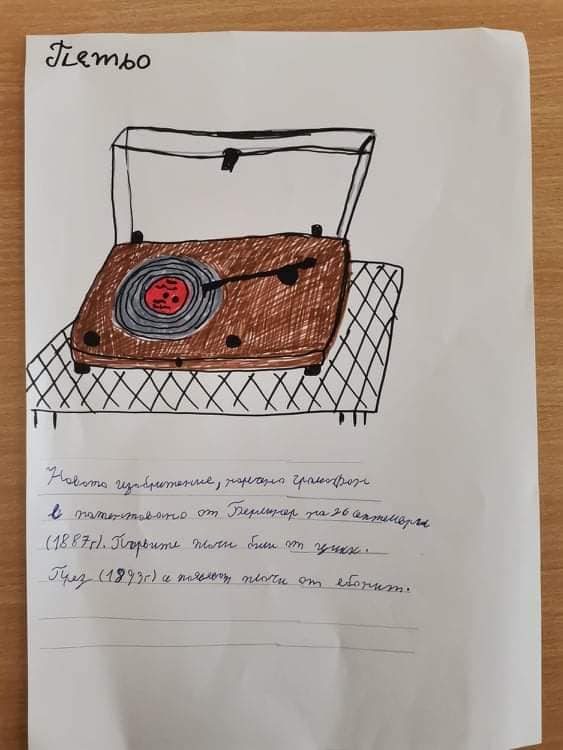 Петьо
Новото изобретение, наречено грамофон
е патентовано от Берлинер на 26 септември
(1887г). Първите плочи били от цинк.
През (1893г) се появяват плочи от ебонит.